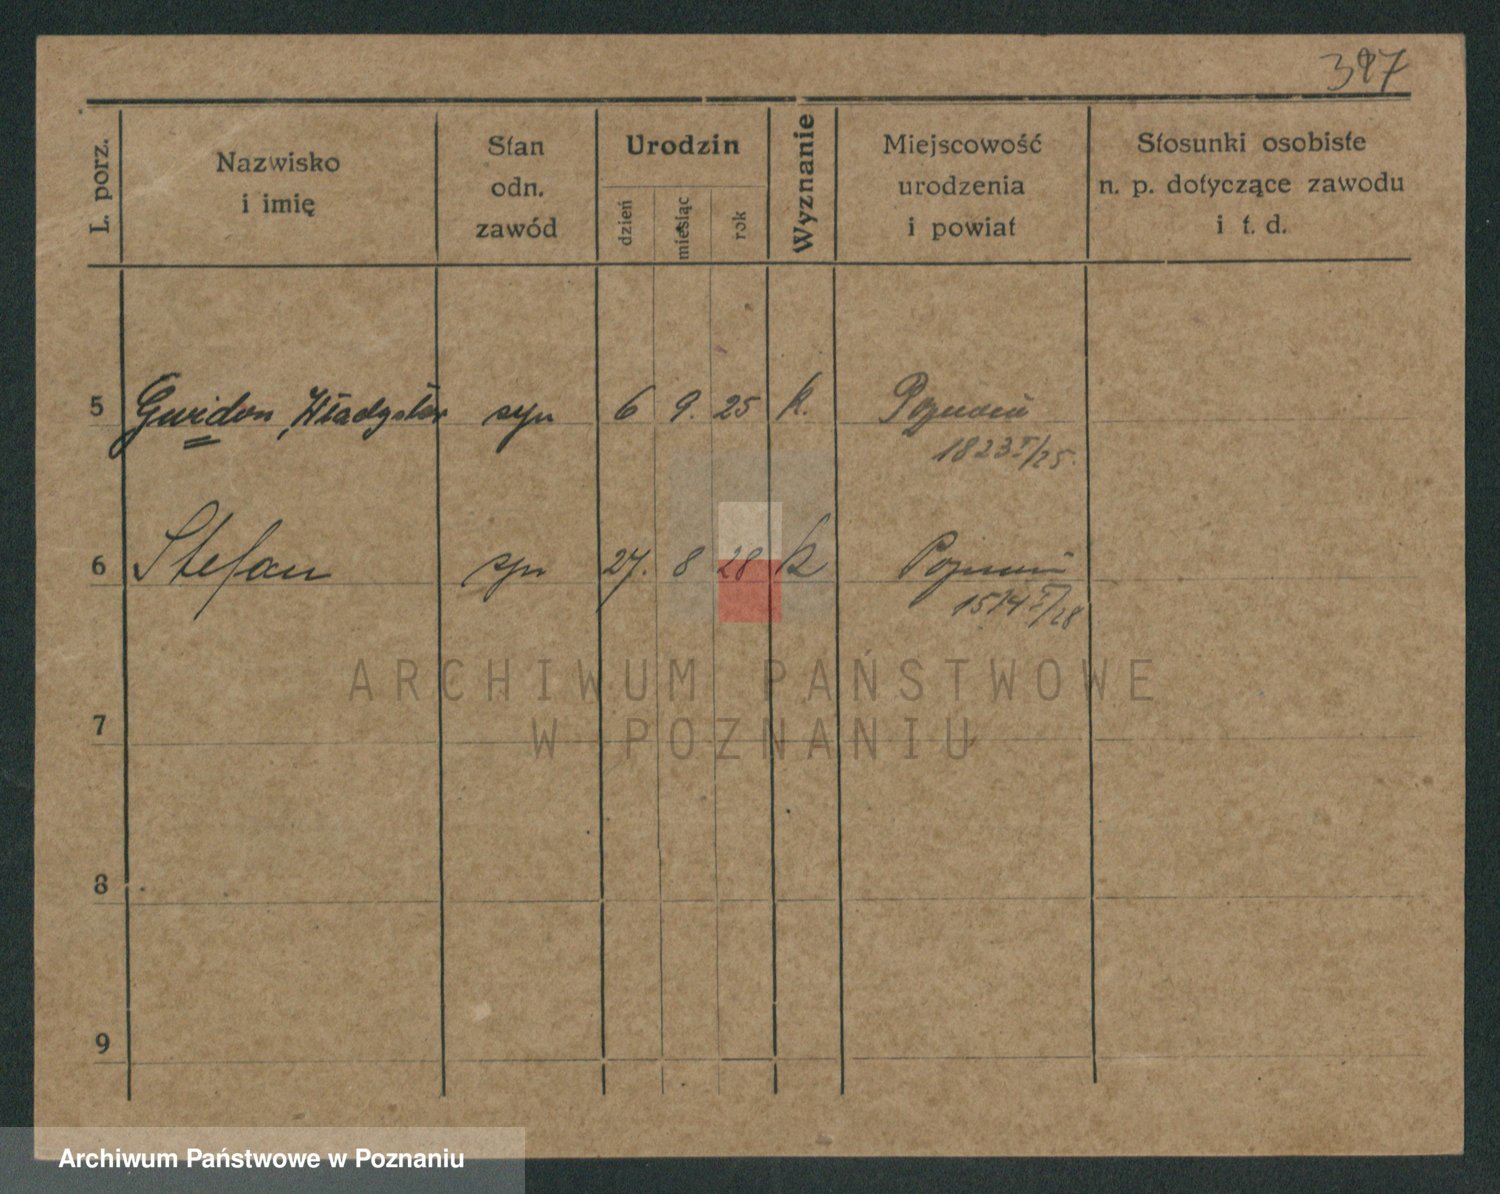 397
L. porz.
Nazwisko
i imię
Stan
odn.
zawód
Urodzin
dzień
miesiąc
rok
Wyznanie
Miejscowość
urodzenia
i powiat
Stosunki osobiste
n. p. dotyczące zawodu
i t. d.
5 Gwidon, Władysław syn 6 9. 25 k. Poznań
1823 I/25.
6 Stefan syn 27. 8 28 k Poznań
1574 I/28
ARCHIWUM PAŃSTWOWE
W POZNANIU
7
8
9
Archiwum Państwowe w Poznaniu